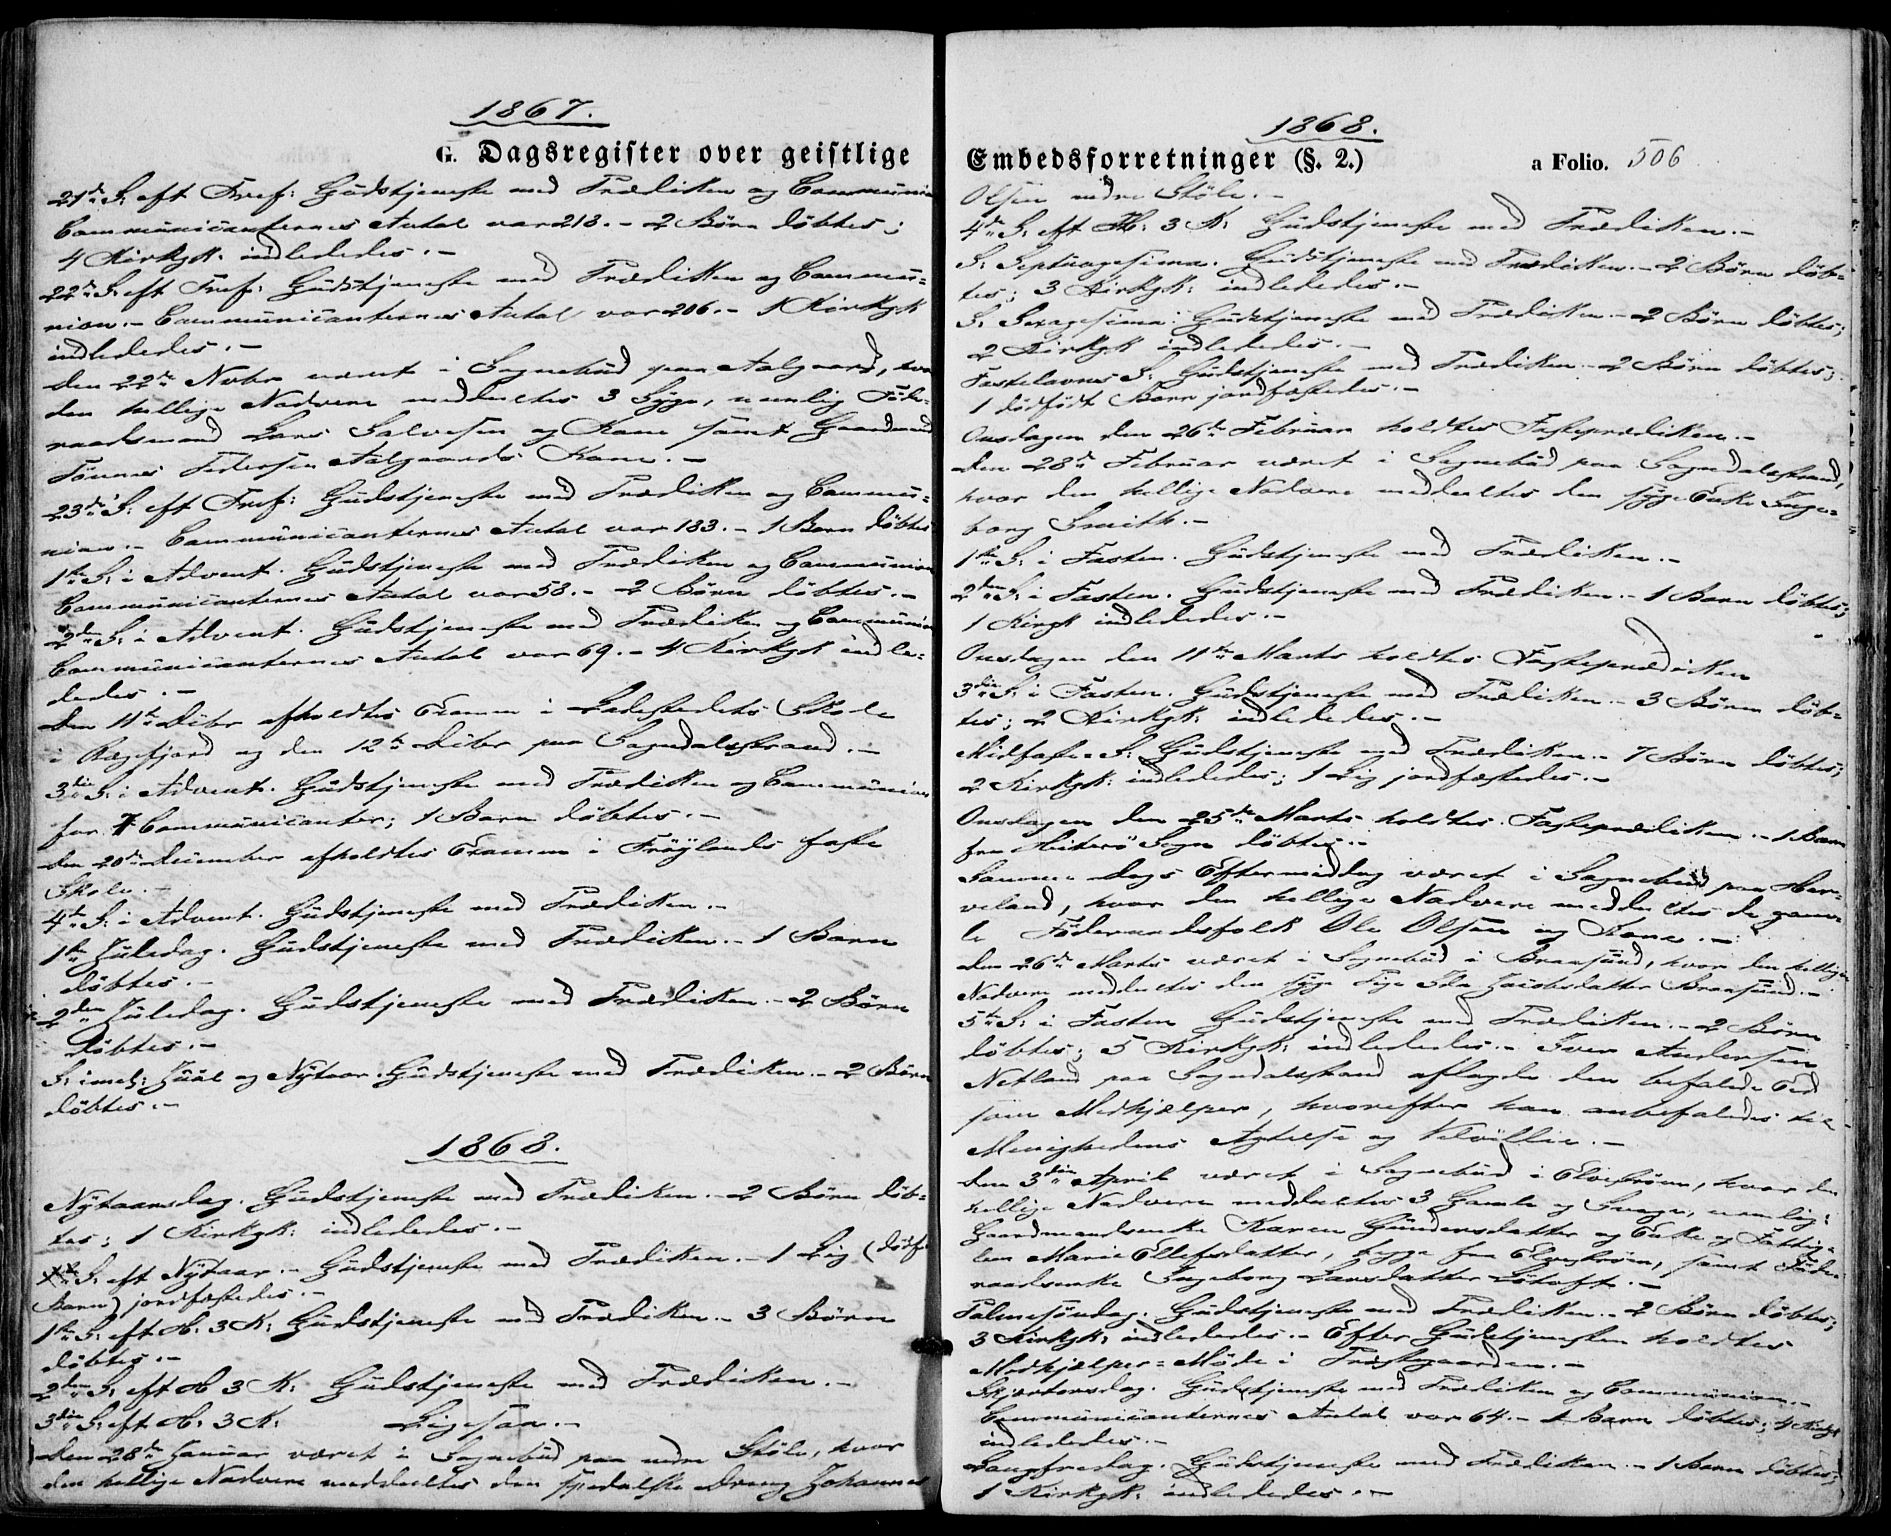 1867.
G. Dagsregister over geistlige
21de S: eft Tref: Gudstjeneste med Prædiken og Communion
Communicanternes Antal var 218. - 2 Børn döbtes;
4 Kirkgk: indlededes. -
22de S: eft Tref: Gudstjeneste med Prædiken og Commu-
nion. - Communicanternes Antal var 206. - 1 Kirkgk
indlededes. -
den 22de Novbr været i Sognebud paa Aalgaard, hvor
den hellige Nadvere meddeeltes 3 Syge, nemlig Föde-
raadsmand Lars Salvesen og Kone samt Gaardmand
Tönnes Pedersen Aalgaards Kone. -
23de S: eft Tref: Gudstjeneste med Prædiken og Commu-
nion. - Communicanternes Antal var 183. - 1 Barn döbtes
1ste S: i Advent. Gudstjeneste med Prædiken og Communion
Communicanternes Antal var 58. - 2 Börn döbtes. -
2den S: i Advent. Gudstjeneste med Prædiken og Communion
Communicanternes Antal var 69. - 4 Kirkgk indle-
dedes. -
den 11te Decbr afholdtes Examen i Ladestedets Skole
i Rægefjord og den 12te Decbr paa Sogndalsstrand. -
3die S: i Advent. Gudstjeneste med Prædiken og Communion
for 7 Communicanter; 1 Barn döbtes. -
den 20de December afholdtes Examen i Fröylands faste
Skole. -
4de S: i Advent. Gudstjeneste med Prædiken. -
1ste Juledag. Gudstjeneste med Prædiken. - 1 Barn
döbtes. -
2den Juledag. Gudstjeneste med Prædiken. - 2 Börn
döbtes. -
S: imel: Juul og Nytaar. Gudstjeneste med Prædiken. - 2 Börn
döbtes. -
1868.
Nytaarsdag. Gudstjeneste med Prædiken. - 2 Börn döb-
tes; 1 Kirkgk: indlededes. -
S: eft Nytaar. - Gudstjeneste med Prædiken. - 1 Lig (dödf:
Barn) jordfæstedes. -
1ste S: eft H: 3 K: Gudstjeneste med Prædiken. - 3 Börn
döbtes. -
2den S: eft H 3 K: Gudstjeneste med Prædiken. -
3die S: eft H: 3 K: Ligesaa. -
den 28de Januar været i Sognebud paa nedre Stöle, hvor
den hellige Nadvere meddeeltes den spedalske Dreng Johannes
1868.
Embedsforretninger (§. 2.)
a Folio. 506
Olsen nedre Stöle. -
4de S: eft H: 3 K: Gudstjeneste med Prædiken. -
S: Septuagesima. Gudstjeneste med Prædiken. - 2 Börn döb-
tes; 3 Kirkgk: indlededes. -
S: Sexagesima: Gudstjeneste med Prædiken. - 2 Börn döbtes;
2 Kirkgk indlededes. -
Fastelavns S: Gudstjeneste med Prædiken. - 2 Börn döbtes;
1 dödfödt Barn jordfæstedes. -
Onsdagen den 26de Februar holdtes Fasteprædiken. -
den 28de Februar været i Sognebud paa Sogndalsstrand,
hvor den hellige Nadvere meddeeltes den syge Enke Inge-
borg Smith. -
1ste S: i Fasten. Gudstjeneste med Prædiken. -
2den S: i Fasten. Gudstjeneste med Prædiken. - 1 Barn döbtes;
1 Kirgk indlededes. -
Onsdagen den 11te Marts holdtes Fasteprædiken
3die S: i Fasten. Gudstjeneste med Prædiken. - 3 Börn döb-
tes; 2 Kirkgk: indlededes. -
Midfaste S: Gudstjeneste med Prædiken. - 7 Börn döbtes;
2 Kirkgk: indlededes; 1 Lig jordfæstedes. -
Onsdagen den 25de Marts holdtes Fasteprædiken. - 1 Barn
fra Hiterö Sogn döbtes. -
Samme Dags Eftermiddag været i Sognebud paa Her-
veland, hvor den hellige Nadvere meddeeltes de gam-
le Föderaadsfolk Ole Olsen og Kone. -
den 26de Marts været i Sognebud i Bransund, hvor den hellige
Nadvere meddeeltes den syge Pige Ida Jacobsdatter Bransund. -
5te S: i Fasten Gudstjeneste med Prædiken. - 2 Börn
döbtes; 5 Kirkgk: indlededes. - Iver Andersen
Netland paa Sogndalsstrand aflagde den befalede Eed
som Medhjælper, hvorefter han anbefaledes til
Menighedens Agtelse og Velvillie. -
den 3die April været i Sognebud i Elvestrøm, hvor den
hellige Nadvere meddeeltes 3 Gamle og Svage, nemlig:
Gaardmandsenke Karen Gundersdatter og Enke og Fattig-
lem Marie Ellefsdatter, begge fra Elvestrøm, samt Föde-
raadsenke Ingeborg Larsdatter Lötoft. -
Palmesöndag. Gudstjeneste med Prædiken. - 2 Börn döbtes;
3 Kirkgk: indlededes. - Efter Gudstjenesten holdtes
Medhjælper-Möde i Præstegaarden. -
Skjærtorsdag. Gudstjeneste med Prædiken og Communion. -
Communicanternes Antal var 64. - 1 Barn döbtes; 4 Kirkgk
indlededes. -
Langfredag. Gudstjeneste med Prædiken. - 1 Barn döbtes;
1 Kirkgk: indlededes. -